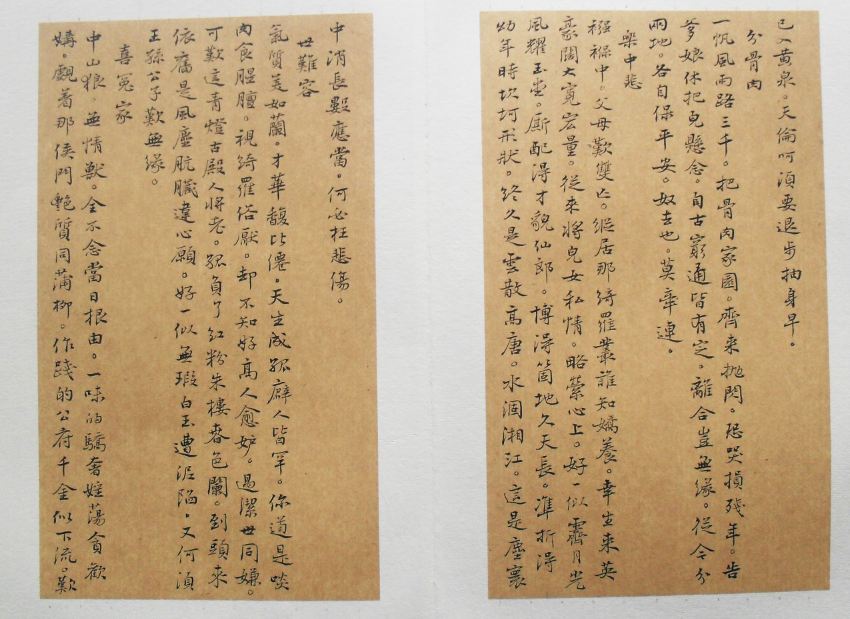 已入黄泉。天倫呵須要退步抽身早。
分骨肉
一帆風雨路三千。把骨肉家園。齊來抛閃。恐哭損殘年。告
爹娘休把兒懸念。自古窮通皆有定。離合豈無緣。從今分
兩地。各自保平安。奴去也。莫牽連。
樂中悲
襁褓中。父母歎雙亡。縱居那綺羅叢誰知嬌養。幸生來英
豪闊大寬宏量。從來將兒女私情。略縈心上。好一似霽月光
風耀玉堂。厮配得才貌仙郎。博得箇地久天長。準折得
幼年時坎坷形狀。終久是雲散高唐。水涸湘江。這是塵寰
中消長數應當。何必枉悲傷。
世難容
氣質美如蘭。才華馥比僊。天生成孤癖人皆罕。你道是啖
肉食腥膻。視綺羅俗厭。却不知好高人愈妒。過潔世同嫌。
可歎這青燈古殿人將老。孤負了紅粉朱樓春色闌。到頭來
依舊是風塵骯髒違心願。好一似無瑕白玉遭泥陷。又何須
王孫公子歎無緣。
喜冤家
中山狼。無情獸。全不念當日根由。一味的驕奢婬蕩貪歡
媾。覷着那侯門艷質同蒲柳。作踐的公府千金似下流。歎